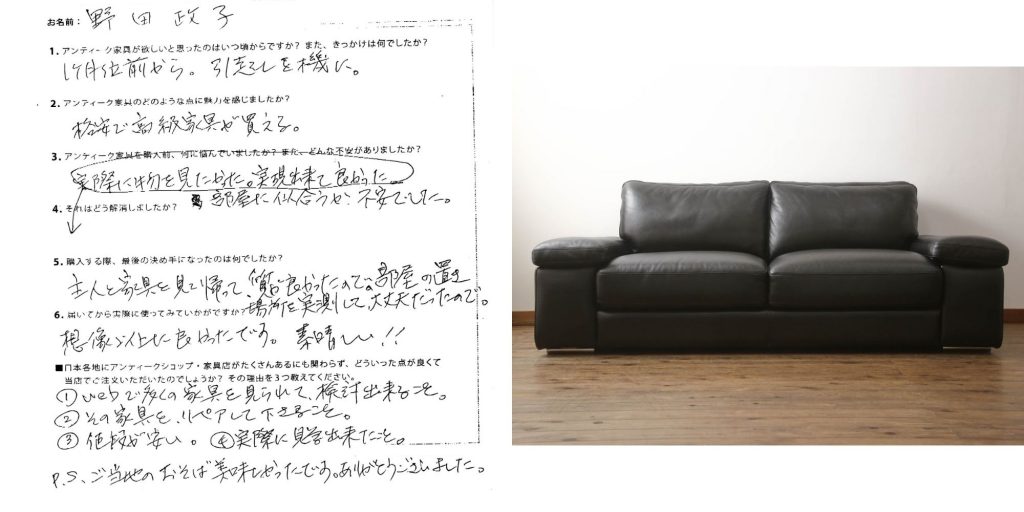 お名前: 野田政子
1. アンティーク家具が欲しいと思ったのはいつ頃からですか? また、きっかけは何でしたか?
1ヶ月位前から。引越しを機に。
2. アンティーク家具のどのような点に魅力を感じましたか?
格安で高級家具が買える。
3. アンティーク家具を購入前、何に悩んでいましたか? また、どんな不安がありましたか?
実際に物を見たかった。実現出来て良かった。
部屋に似合うか不安でした。
4. それはどう解消しましたか?
5. 購入する際、最後の決め手になったのは何でしたか?
主人と家具を見て帰って、質が良かったので。部屋の置き
場所を実測して、大丈夫だったので。
6. 届いてから実際に使ってみていかがですか?
想像以上に良かったです。素晴しい!!
■日本各地にアンティークショップ・家具店がたくさんあるにも関わらず、どういった点が良くて
当店でご注文いただいたのでしょうか? その理由を3つ教えてください。
① webで多くの家具を見られて、検討出来ること。
② その家具を、リペアして下さること。
③ 値段が安い。 ④ 実際に見学出来たこと。
P.S、ご当地のおそば美味しかったです。ありがとうございました。